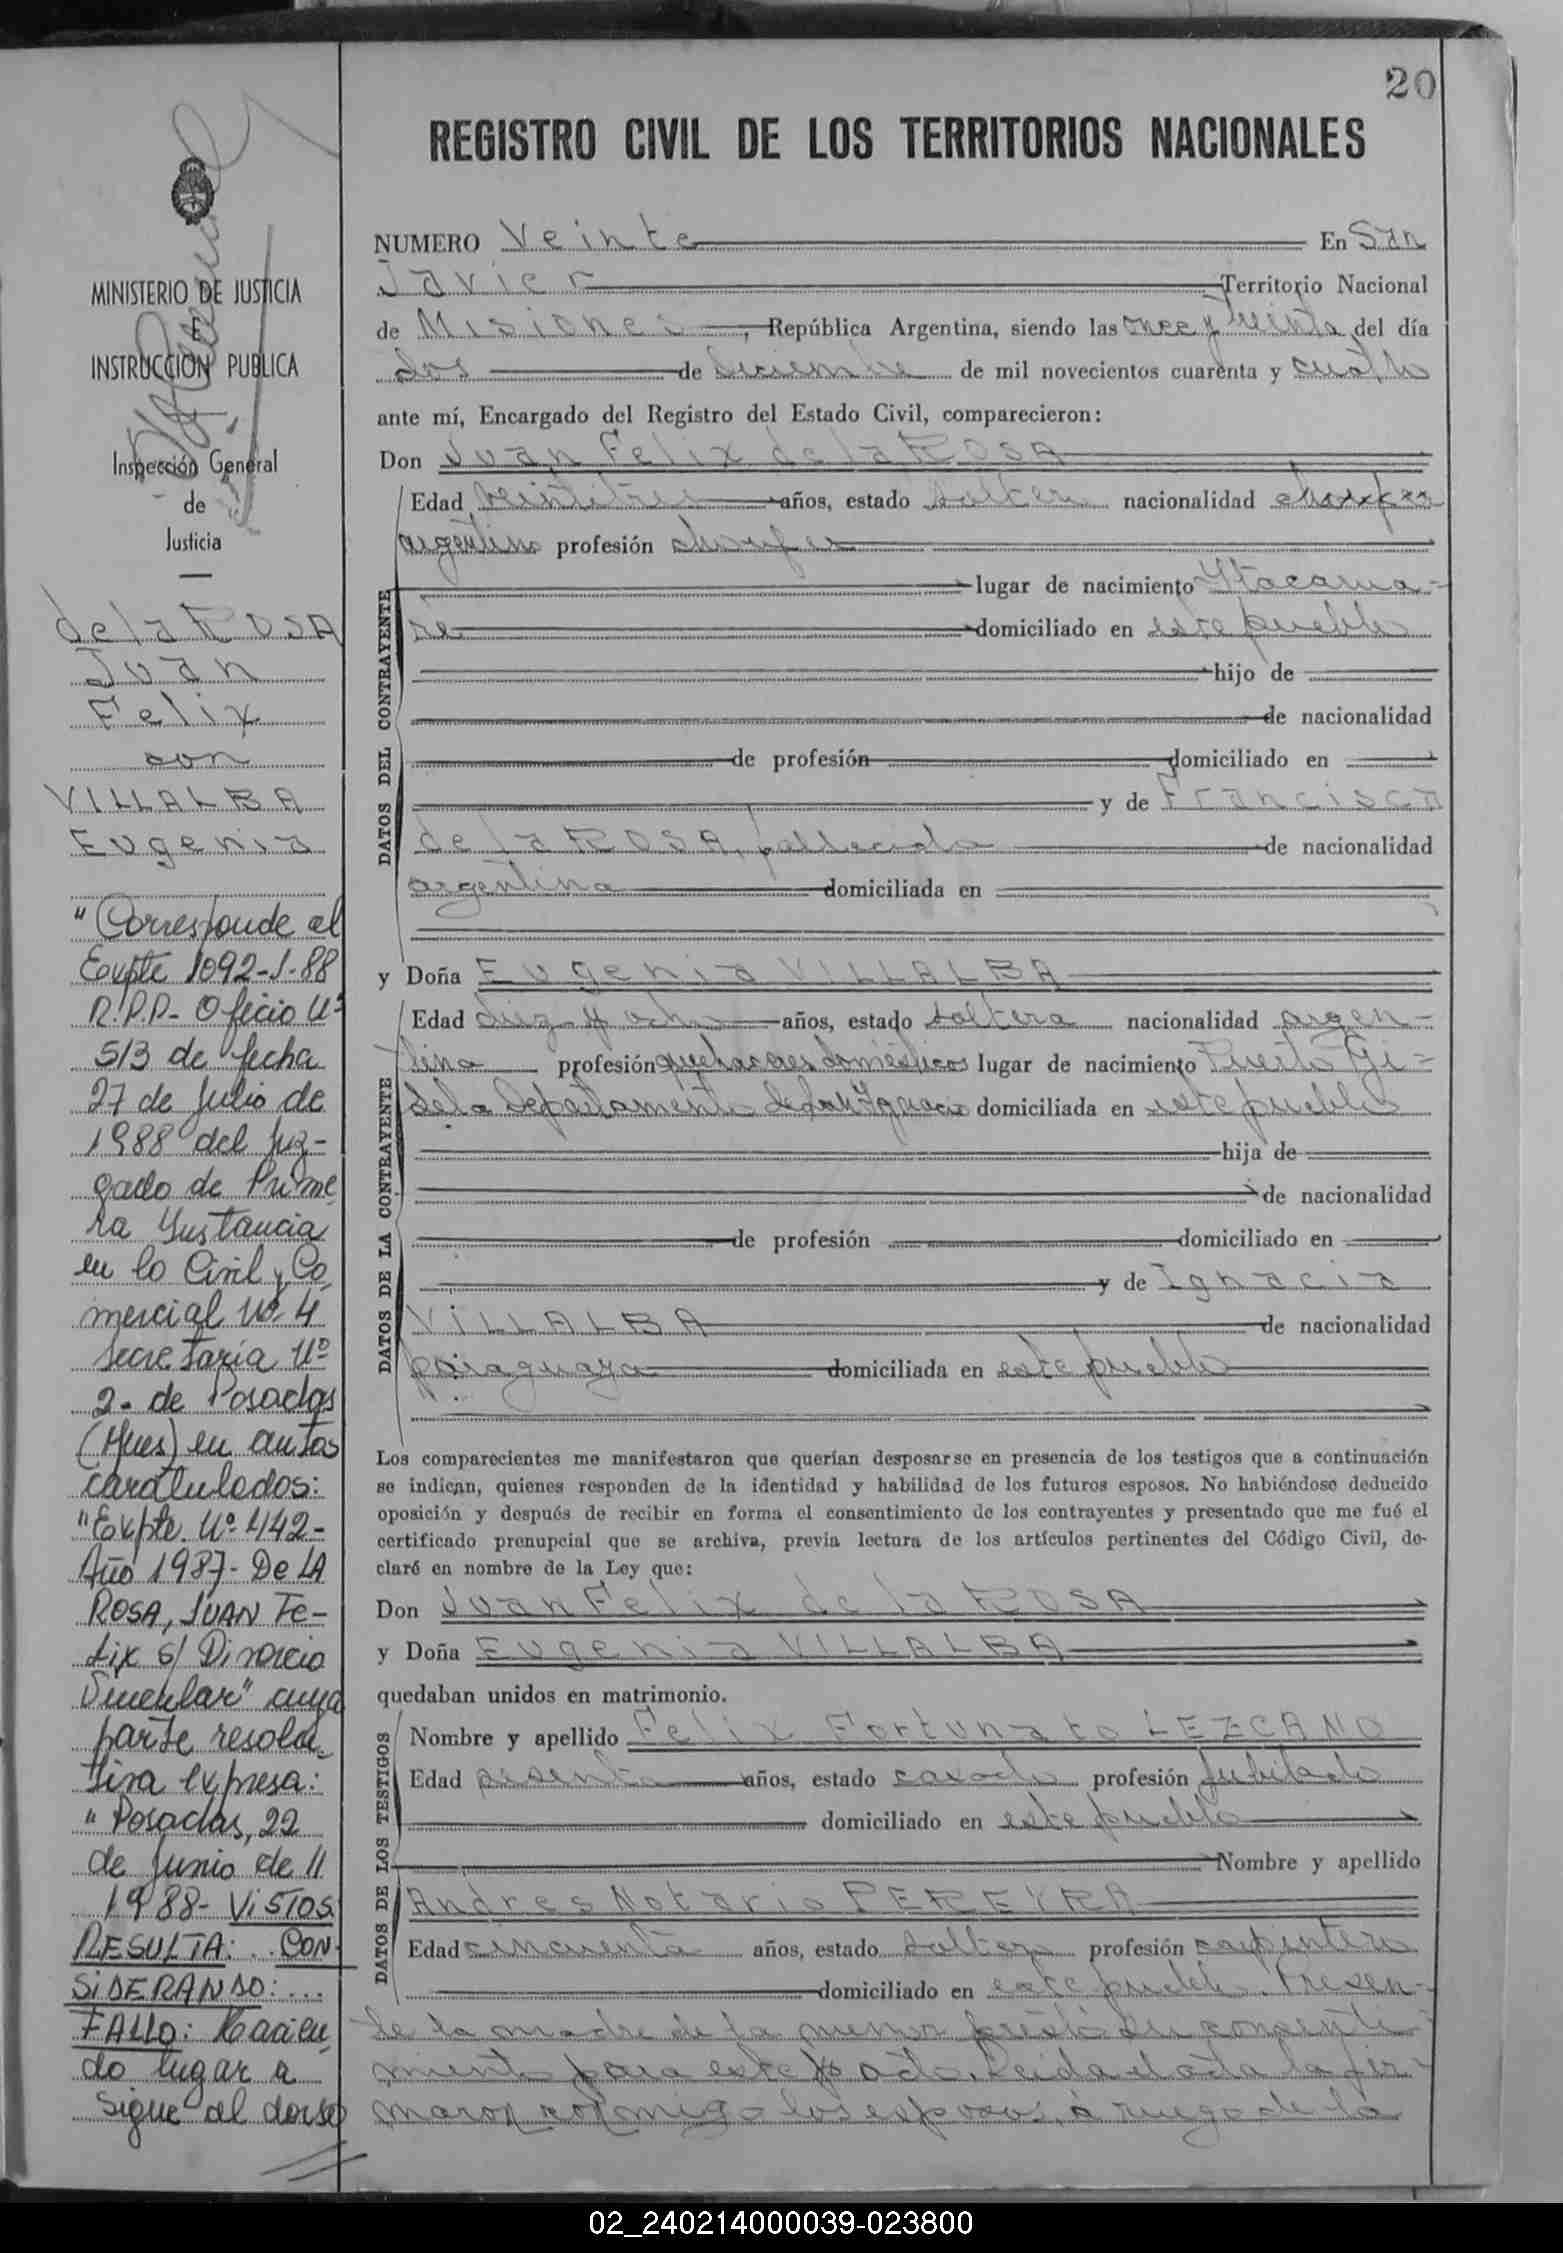 20
REGISTRO CIVIL DE LOS TERRITORIOS NACIONALES
MINISTERIO DE JUSTICIA
E
INSTRUCCIÓN PUBLICA
Inspección General
de
Justicia
de la ROSA
Juan
Felix
con
VILLALBA
Eugenia
"Corresponde al
Expte 1092-J-88
R.P.P- Oficio Nº
513 de fecha
27 de Julio de
1988 del Juz-
gado de Prime
ra Instancia
en lo Civil y Co
mercial Nº 4
Secretaría Nº
2- de Posadas
(Mnes) en autos
caratulados:
"Expte. Nº 442-
Año 1987- De LA
ROSA, JUAN Fe-
Lix S/ Divorcio
Vincular" cuya
parte resolu
tiva expresa:
" Posadas, 22
de Junio de
1988- VISTOS
RESULTA: .. CON
SIDERANDO: ...
FALLO: Hacien
do lugar a
sigue al dorso
NUMERO Veinte En San
Javier Territorio Nacional
de Misiones, República Argentina, siendo las once y treinta del día
dos de diciembre de mil novecientos cuarenta y cuatro
ante mí, Encargado del Registro del Estado Civil, comparecieron:
Don Juan Felix de la ROSA
DATOS DEL CONTRAYENTE
Edad veintitres años, estado soltero nacionalidad choufer
argentino profesión choufer
lugar de nacimiento Itacarua-
ré domiciliado en este pueblo
hijo de
de nacionalidad
de profesión domiciliado en
y de Francisca
de la ROSA, fallecida de nacionalidad
argentina domiciliada en
y Doña Eugenia VILLALBA
DATOS DE LA CONTRAYENTE
Edad diez y ocho años, estado soltera nacionalidad argen-
tina profesión quehaceres domésticos lugar de nacimiento Puerto Gi-
sela Departamento de San Ignacio domiciliada en este pueblo
hija de
de nacionalidad
de profesión domiciliado en
y de Ignacia
VILLALBA de nacionalidad
paraguaya domiciliada en este pueblo
Los comparecientes me manifestaron que querían desposarse en presencia de los testigos que a continuación
se indican, quienes responden de la identidad y habilidad de los futuros esposos. No habiéndose deducido
oposición y después de recibir en forma el consentimiento de los contrayentes y presentado que me fué el
certificado prenupcial que se archiva, previa lectura de los artículos pertinentes del Código Civil, de-
claré en nombre de la Ley que:
Don Juan Felix de la ROSA
y Doña Eugenia VILLALBA
quedaban unidos en matrimonio.
DATOS DE LOS TESTIGOS
Nombre y apellido Felix Fortunato LEZCANO
Edad sesenta años, estado casado profesión jubilado
domiciliado en este pueblo
Nombre y apellido
Andres Notario PEREYRA
Edad cincuenta años, estado soltero profesión carpintero
domiciliado en este pueblo. Presen-
te la madre de la menor prestó su consenti-
miento para este acto. Leída el acta la fir-
maron conmigo los esposos, a ruego de la
02_240214000039-023800